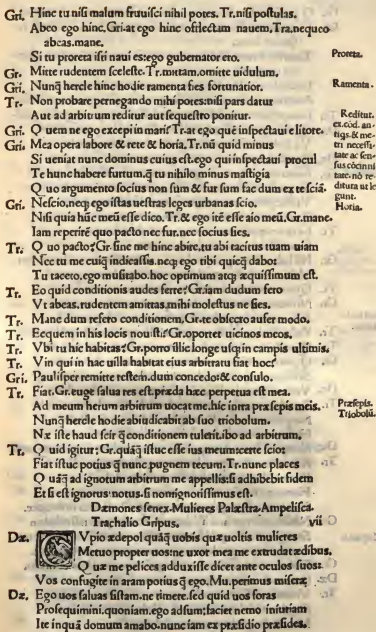 Gri. Hinc tu nisi malum fruuisci nihil potes. Tr. nisi postulas.
Abeo ego hinc. Gri. at ego hinc offlectam nauem. Tra. nequeo
abeas. mane.
Si tu proreta isti naui es: ego gubernator ero. Proreta.
Gr. Mitte rudentem sceleste. Tr. mittam. omitte uidulum.
Gri. Nunq̃ hercle hinc hodie ramenta fies fortunatior. Ramenta.
Tr. Non probare pernegando mihi potes: nisi pars datur
Aut ad arbitrum reditur aut sequestro ponitur. Reditur.
Gri. Quem ne ego excepi in mari? Tr. at ego quē inspectaui e litore. ex. cod. an-
Gri. Mea opera labore & rete & horia. Tr. nū quid minus tiqs. & me-
Si ueniat nunc dominus cuius est. ego qui inspectaui procul tri necessi-
Te hunc habere furtum. q̃ tu nihilo minus mastigia tate ac sen-
Quo argumento socius non sum & fur sum fac dum ex te sciā. sus cōcinni
Gri. Nescio. neq; ego istas uestras leges urbanas scio. tate. nō re-
Nisi quia hūc meū esse dico. Tr. & ego itē esse aio meū. Gr. mane. ditura ut le
Iam reperiré quo pacto nec fur. nec socius sies. gunt.
Gri. Quo pacto? Gr. sine me hinc abire. tu abi tacitus tuam uiam Horia.
Nec tu me cuiq̃ indicassis. neq; ego tibi quicq̃ dabo:
Tu taceto. ego musitabo. hoc optimum atq; æquissimum est.
Tr. Eo quid conditionis audes ferre? Gr. iam dudum fero
Vt abeas. rudentem amittas. mihi molestus ne sies.
Tr. Mane dum refero conditionem. Gr. te obsecro aufer modo.
Tr. Ecquem in his locis nouisti? Gr. oportet uicinos meos.
Tr. Vbi tu hic habitas? Gr. porro illic longe usq; in campis ultimis.
Tr. Vin qui in hac uilla habitat eius arbitratu fiat hoc?
Gri. Paulisper remitte restem. dum concedo: & consulo.
Tr. Fiat. Gr. euge salua res est. præda hæc perpetua est mea.
Ad meum herum arbitrum uocat me. hic intra præsepis meis. Præsepis.
Nunq̃ hercle hodie abiudicabit ab suo triobolum. Triobolū.
Næ iste haud scit q̃ conditionem tulerit. ibo ad arbitrum.
Tr. Quid igitur? Gr. quāq̃ istuc esse ius meum: certe scio:
Fiat istuc potius q̃ nunc pugnem tecum. Tr. nunc places
Quāq̃ ad ignotum arbitrum me appellis: si adhibebit fidem
Etsi est ignotus: notus. si non: ignotissimus est.
Dæmones senex. Mulieres Palæstra. Ampelisca.
Trachalio Gripus. vii
Dæ. Vpio ædepol quāq̃ uobis quæ uoltis mulieres
Metuo propter uos: ne uxor mea me extrudat ædibus.
Quæ me pelices adduxisse dicet ante oculos suos:
Vos confugite in aram potius q̃ ego. Mu. perimus miseræ
Dæ. Ego uos saluas sistam. ne timere. sed quid uos foras
Prosequimini. quoniam. ego adsum: faciet nemo iniuriam
Ite inquā domum amabo. nunc iam ex præsidio præsides.